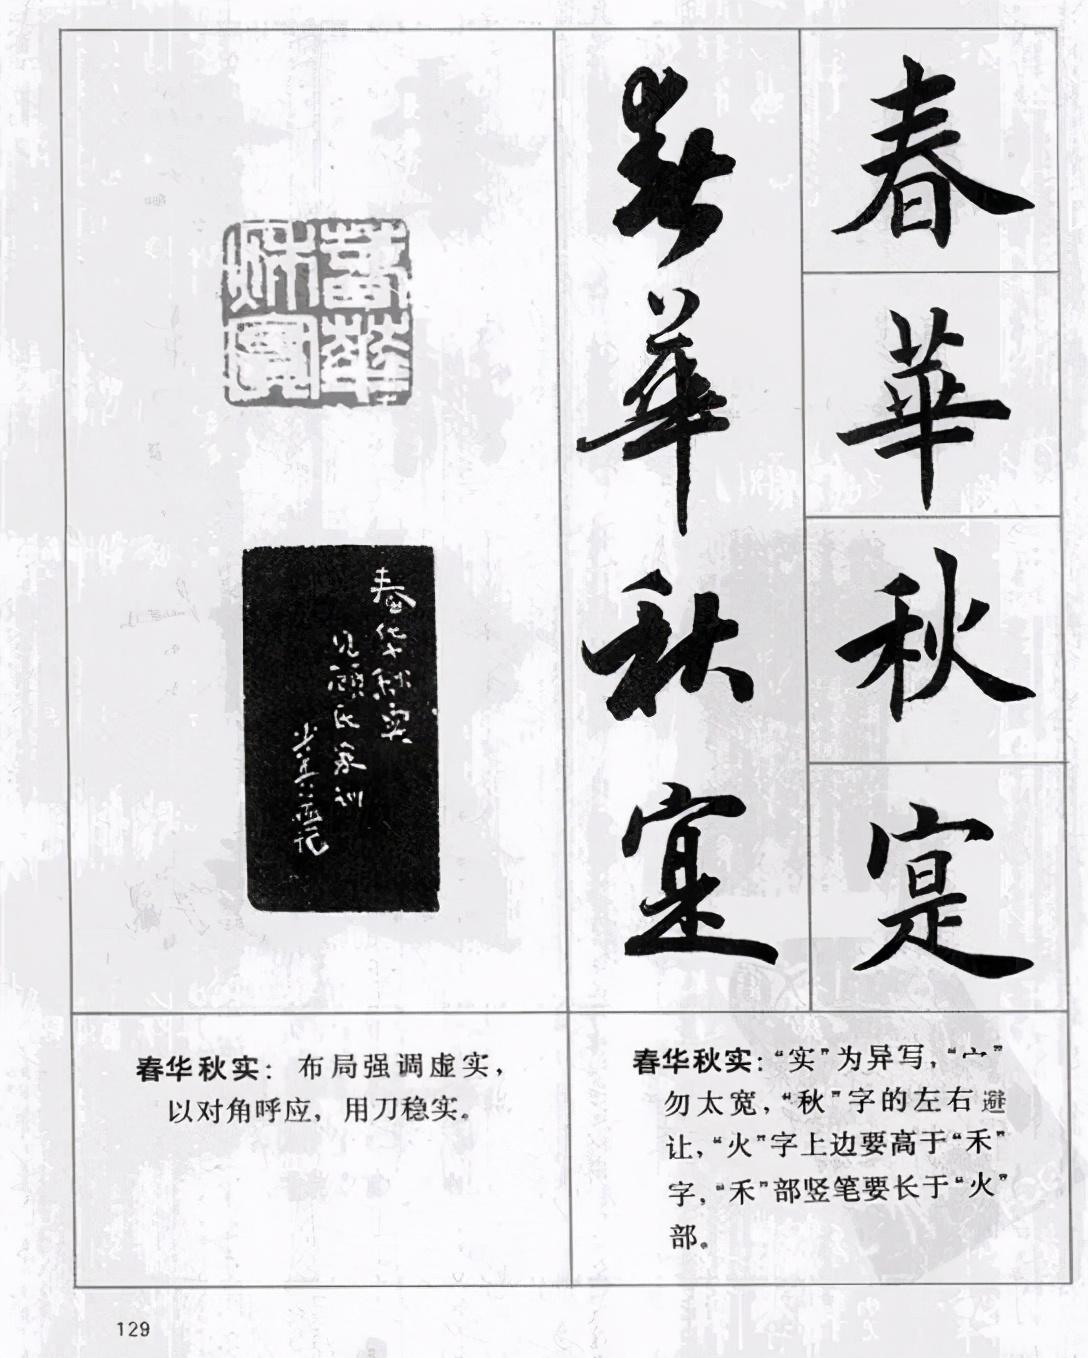 春華秋寔
春華秋寔
春華
秋實
春华秋实
见颜氏家训
春华秋实：布局强调虚实，
以对角呼应，用刀稳实。
春华秋实：“实”为异写，“宀”
勿太宽，“秋”字的左右避
让，“火”字上边要高于“禾”
字，“禾”部竖笔要长于“火”
部。
129